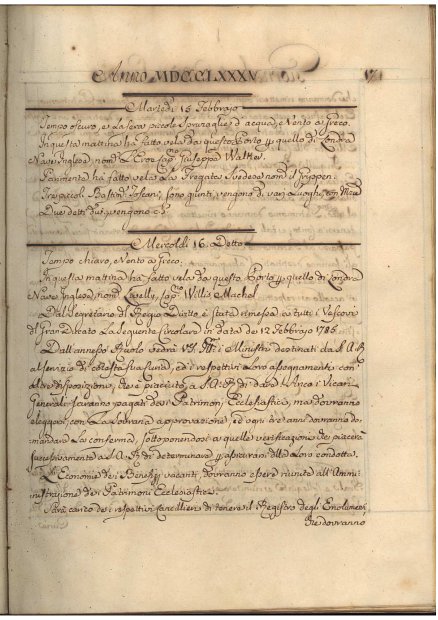 Anno MDCCLXXXV
Martedì 15 Febbrajo
Tempo oscuro, e la sera piccole spruzaglie d'acqua, e Vento a Greco.
In questa mattina ha fatto vela da questo Porto p quello di Londra
Nave Inglese nom Capo Giuseppe Walker.
Parimente ha fatto vela La Fregata Svedese nom
Tre piccoli Bastim Toscani, sono giunti, vengono da varj Luoghi, con
Due detti vengono
Mercoldì 16 Detto
Tempo chiaro, Vento a Greco.
In questa mattina ha fatto vela da questo Porto p quello di Londra
Nave Inglese, nom Capo Willis
Dal Segretario del Regio Diritto è stata rimessa a tutti i Vescovi
del Gran Ducato La Seguente Circolare in data de 12 Febbrajo 1785.
Dall'annesso Ruolo vedrà VS. i Ministri destinati da S A R
al servizio di cotesta sua Curia, ed i respettivi Loro assegnamenti con
altre disposizioni, che è piaciuto a S. A. R di dare. Anco i Vicarj
Generali saranno pagati dai Patrimonj Ecclesiastici, ma dovranno
eleggersi con La Sovrana approvazione, ed ogni tre anni domando
mandare La conferma, sottoponendosi a quelle verificazioni che piacerà
successivamente a S A R di determinare p assicurarsi della Loro condotta.
L'Economie dei Benefizj vacanti, dovranno essere riunite all'Ammi
nistrazione dei Patrimonj Ecclesiastici.
Sarà carico dei respettivi Cancellieri di tenere il Registro degli Emolumenti,
che dovranno